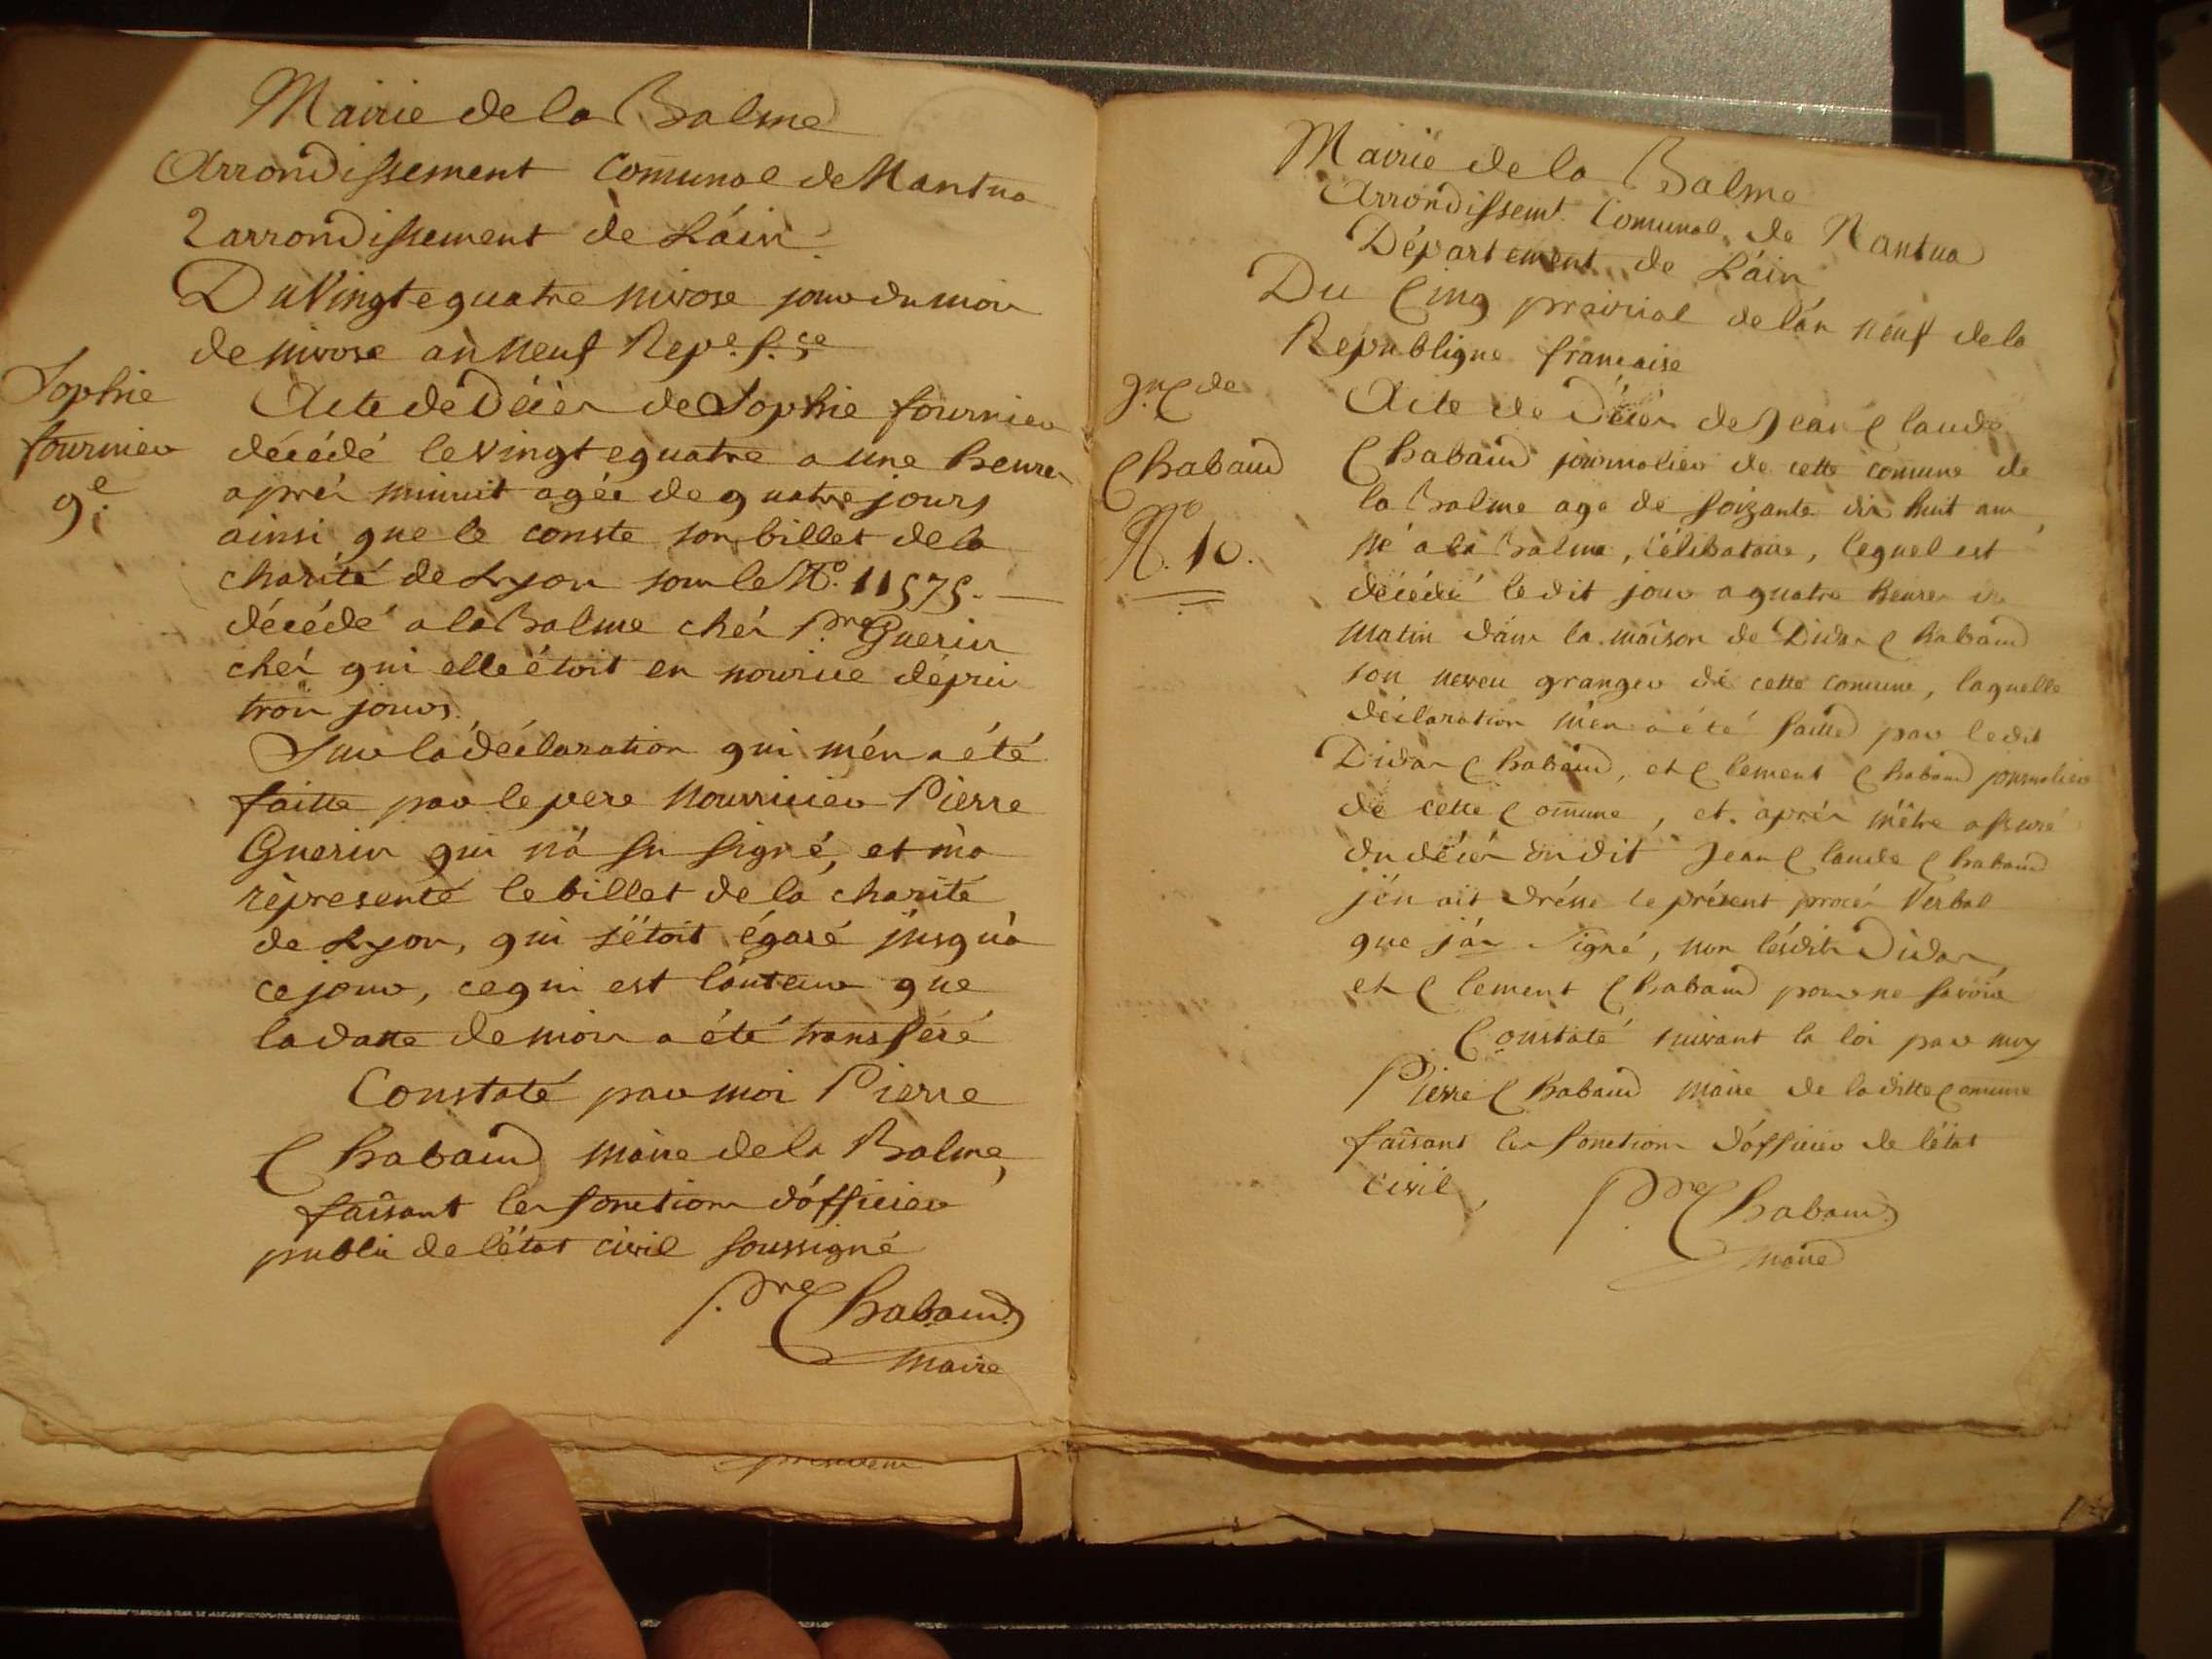 Mairie de la Balme
Arrondissement Comunal de Nantua
2 arrondissement de L'áin
Du Vingt e quatre nivose jour du mois
de nivose an neuf Repe. f.se
Sophie
fournier
9e.
Acte de Décès de Sophie fournier
décédé le vingt e quatre a une heure
aprés minuit agée de quatre jours
ainsi que le conste son billet de la
charité de Lyon sous le No. 11575.
décédé a la Balme chés Pre Guerin
chés qui elle étoit en nourice dépuis
trois jours.
Sur la déclaration qui m'én a été
faitte par le pere nourricier Pierre
Guerin qui n'a su signé, et m'a
répresenté le billet de la charité
de Lyon, qui s'étoit égaré jusqu'a
ce jour, ce qui est l'auteur que
la datte de mois a été transféré
Constaté par moi Pierre
Chabaud maire de la Balme,
faisant les fonctions d'officier
public de l'état civil soussigné
Pre Chabaud
maire
Mairie de la Balme
Arrondissemt. Comunal de Nantua
Département de L'áin
Du Cinq prairial de l'án neuf de la
République française
jn. Cde
Chabaud
No. 10.
Acte de Décès de Jean Claude
Chabaud journalier de cette comune de
la Balme age de soizante dix huit ans
né a la Balme, célibataire, lequel est
décédé le dit jour a quatre heures du
matin dans la maison de Didar Chabaud
son neveu granger de cette comune, laquelle
déclaration m'en a été faitte par le dit
Didar Chabaud, et Clement Chabaud journalier
de cette Comune, et aprés m'être assuré
du décés du dit Jean Claude Chabaud
j'én ait drésse le présent procés Verbal
que j'ái signé, non lésdits Didar
et Clement Chabaud pour ne savoir
Constaté suivant la loi par moy
Pierre Chabaud maire de la ditte Comune
faisant les fonctions d'officier de l'état
civil,
Pre Chabaud
maire